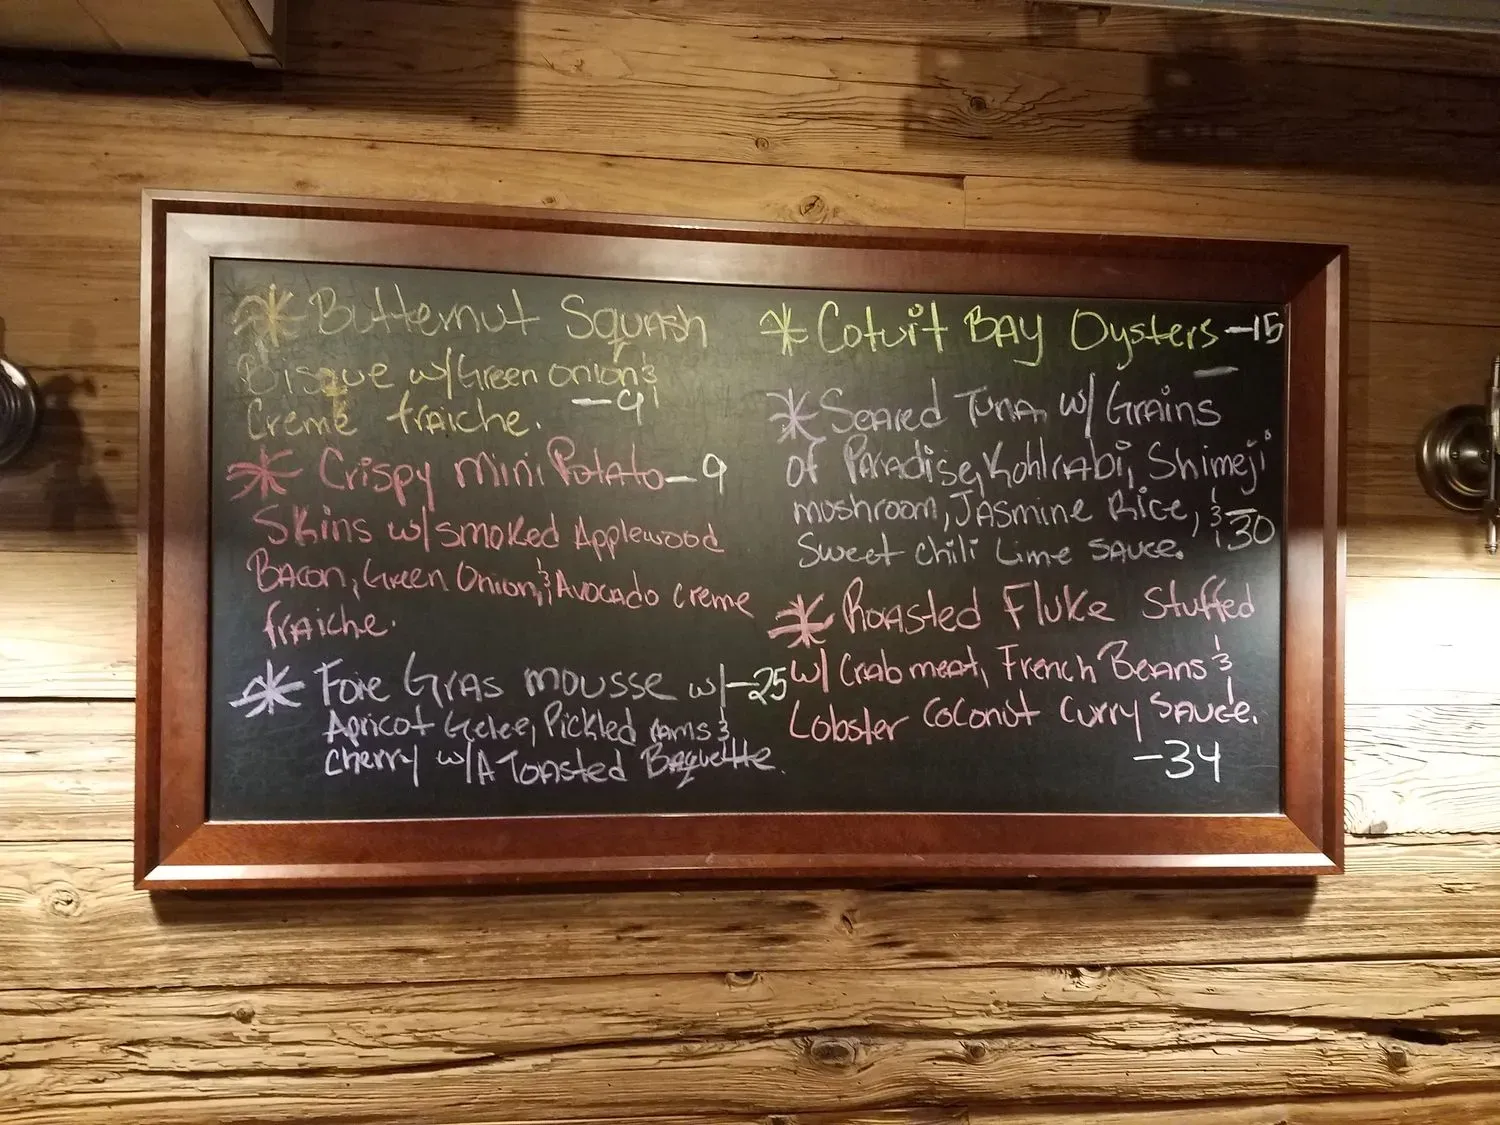 * Butternut Squash
Bisque w/Green onion &
Creme fraiche. -9
* Crispy mini Potato -9
Skins w/smoked Applewood
Bacon, Green Onion, & Avocado creme
fraiche.
* Foie Gras mousse w/ -25
Apricot Gelee, Pickled &
cherry w/A Toasted Baguette.
* Cotuit BAY Oysters -15
* Seared Tuna w/ Grains
of Paradise, Kohlrabi, Shimeji
mushroom, Jasmine Rice, & -30
Sweet chili Lime SAUCE.
* Roasted Fluke Stuffed
w/ Crab meat, French Beans &
Lobster Coconut Curry SAUCE.
-34